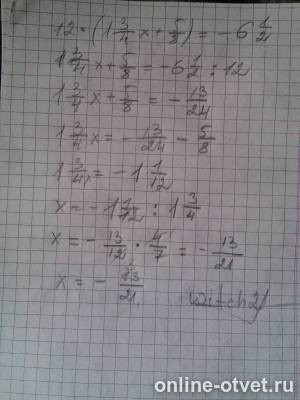 12 · (1 3/4 x + 5/8) = -6 1/2
1 3/4 x + 5/8 = -6 1/2 : 12
1 3/4 x + 5/8 = - 13/24
1 3/4 x = - 13/24 - 5/8
1 3/4 x = -1 1/12
x = -1 1/12 : 1 3/4
x = - 13/12 · 4/7 = - 13/21
x = - 13/21.
witch21
online-otvet.ru